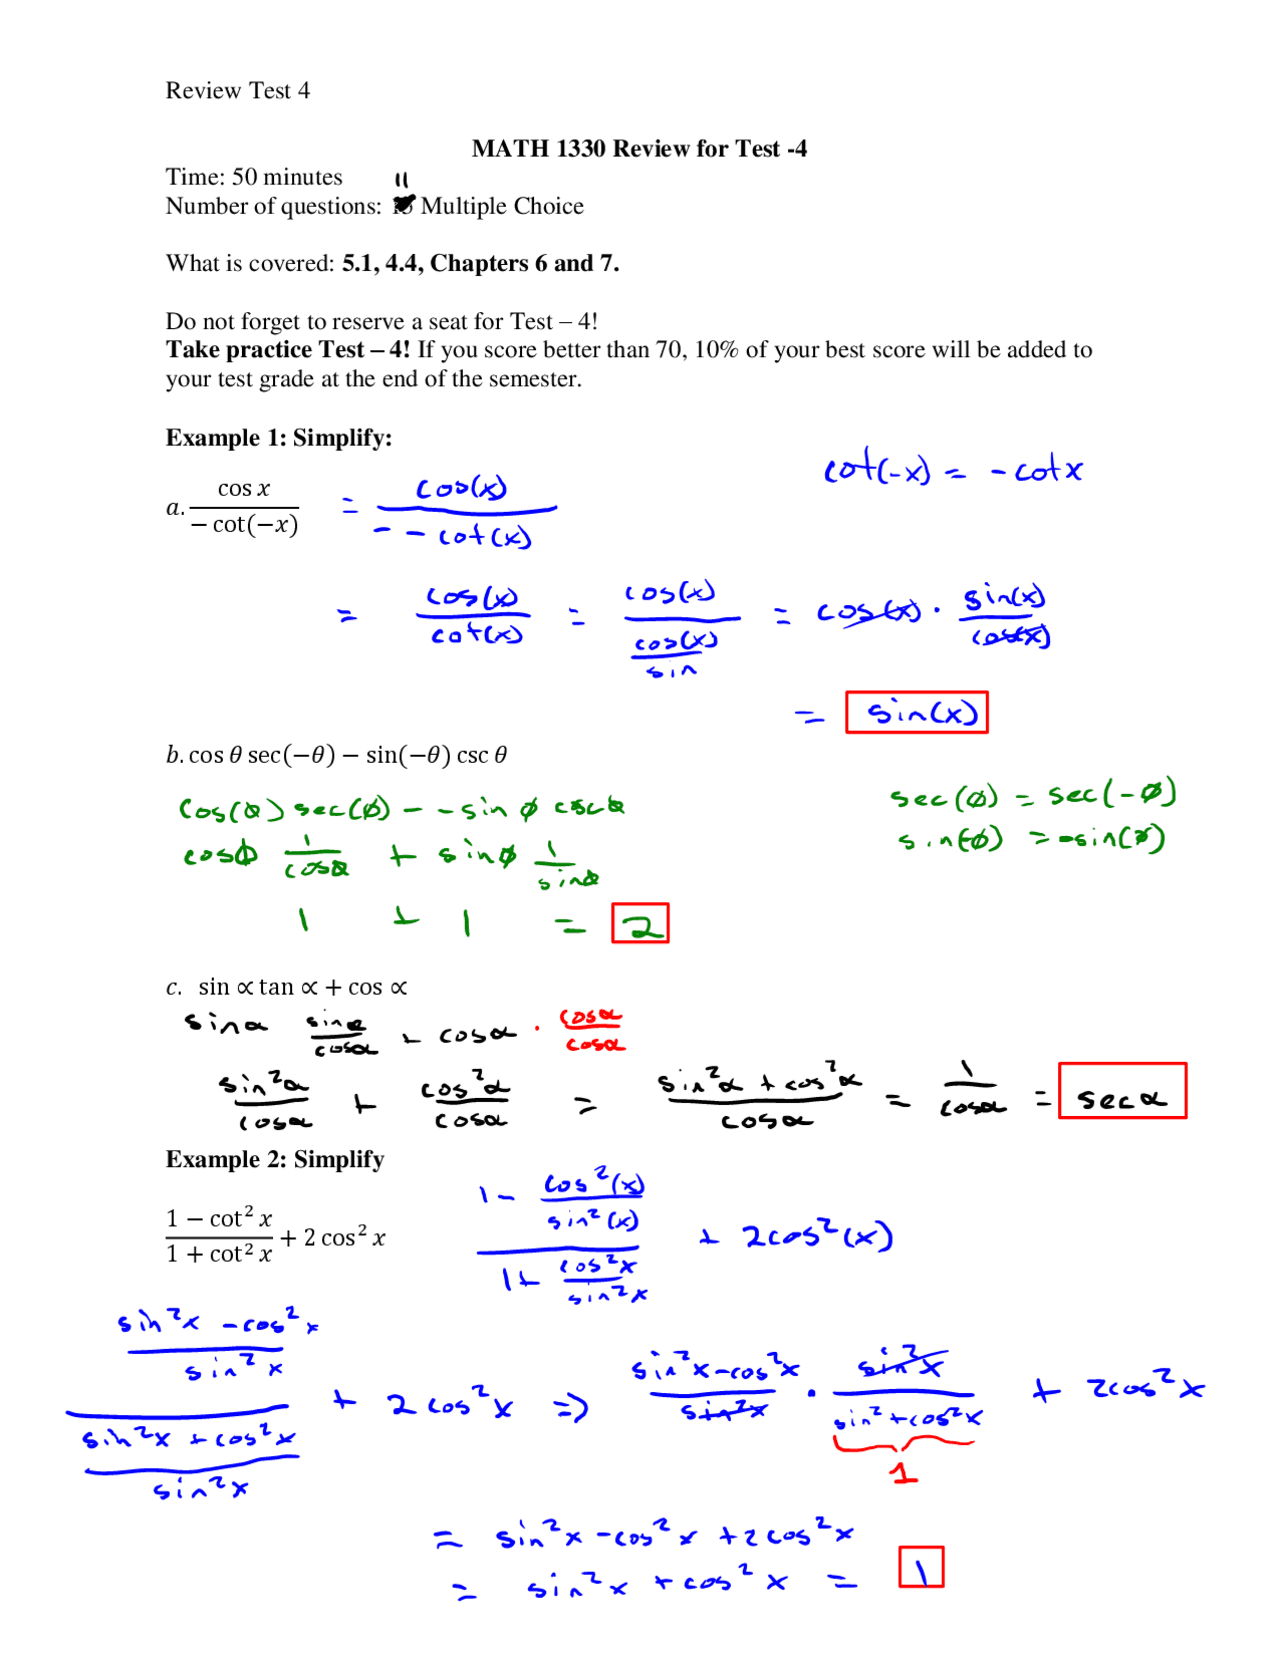 Review Test 4
MATH 1330 Review for Test -4
Time: 50 minutes
11
Number of questions: Multiple Choice
What is covered: 5.1, 4.4, Chapters 6 and 7.
Do not forget to reserve a seat for Test – 4!
Take practice Test – 4! If you score better than 70, 10% of your best score will be added to
your test grade at the end of the semester.
Example 1: Simplify:
cot(-x) = - cot x
a. cos x / − cot(−x) = cos(x) / - - cot(x)
= cos(x) / cot(x) = cos(x) / (cos(x) / sin) = cos(x) · sin(x) / cos(x)
= sin(x)
b. cos θ sec(−θ) − sin(−θ) csc θ
cos(θ) sec(θ) - - sin θ csc θ
sec(θ) = sec(-θ)
cosθ 1/cosθ + sinθ 1/sinθ
sin(-θ) = -sin(θ)
1 + 1 = 2
c. sin ∝ tan ∝ + cos ∝
sinα sinα/cosα + cosα · cosα/cosα
sin²α/cosα + cos²α/cosα = (sin²α + cos²α)/cosα = 1/cosα = secα
Example 2: Simplify
(1 − cot² x)/(1 + cot² x) + 2 cos² x
(1 - cos²(x)/sin²(x)) / (1 + cos²x/sin²x) + 2cos²(x)
((sin²x - cos²x)/sin²x) / ((sin²x + cos²x)/sin²x) + 2cos²x => (sin²x - cos²x)/sin²x · sin²x/(sin² + cos²x) + 2cos²x
1
= sin²x - cos²x + 2cos²x
= sin²x + cos²x = 1